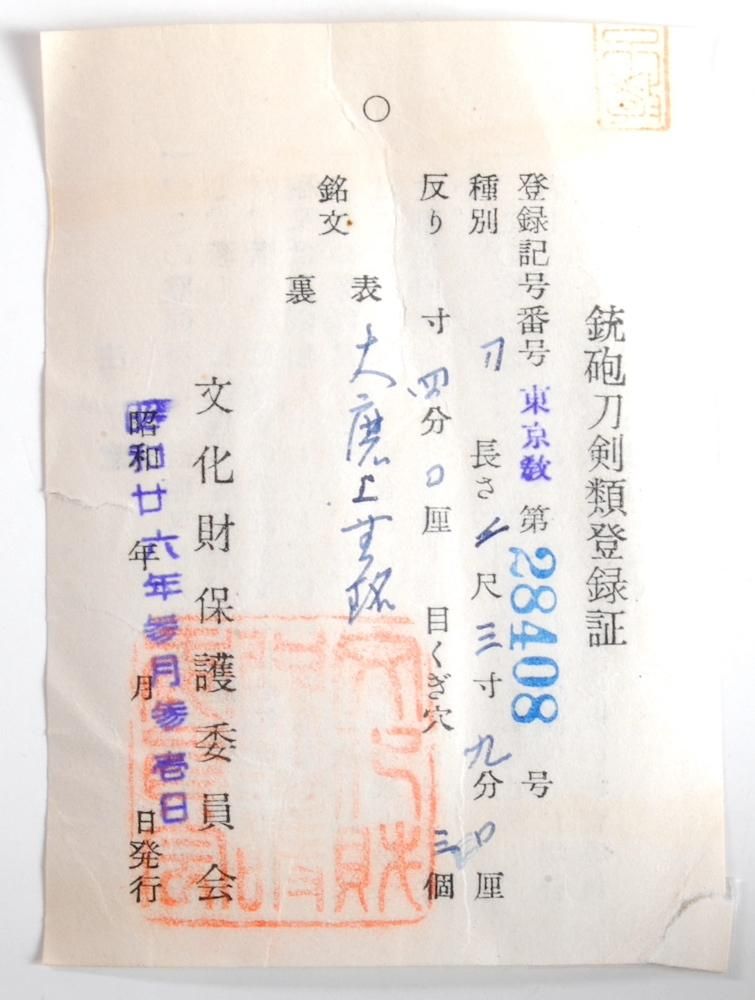 銃砲刀剣類登録証
登録記号番号 東京教 第 28408 号
種別 刀 長さ 尺 三寸 九分 厘
反り 寸 四分 〇厘 目くぎ穴 三個
銘文 表 大磨上無銘
裏
文化財保護委員会
昭和廿六年参月参壱日
昭和 年 月 日発行